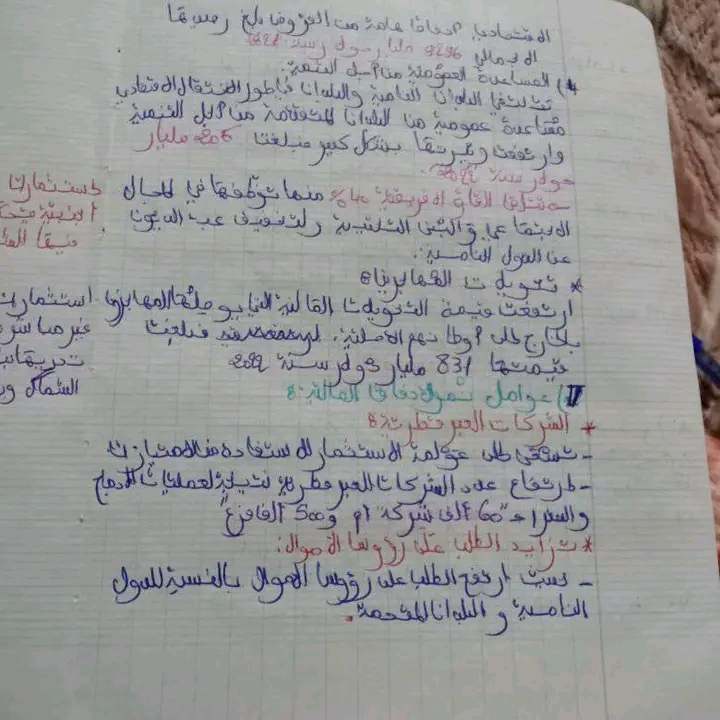 الاقتصادي انفاقا هامة من القروض بلغ رصيدها
الاجمالي 9296 مليار دولار سنة 2022
4) المساعدة العمومية من أجل التنمية:
تتلقى البلدان النامية والبلدان في طور الانتقال الاقتصادي
مساعدة عمومية من البلدان المتقدمة من أجل التنمية
وارتفعت وتيرتها بشكل كبير فبلغت 206 مليار
دولار سنة 2022.
تتلقى القارة الافريقية 40% منها توظفها في المجال
الاجتماعي والبنى التحتية ولتخفيف عبء الديون
عن الدول النامية.
* تحويلات المهاجرين:
ارتفعت قيمة التحويلات المالية التي يوجهها المهاجرون
بالخارج إلى أوطانهم الأصلية فبلغت
قيمتها 831 مليار دولار سنة 2022
II) عوامل تدفقات المالية:
* الشركات العبر قطرية:
- تسعى إلى عولمة الاستثمار للاستفادة من الامتيازات
- ارتفاع عدد الشركات العبر قطرية نتيجة لعمليات الادماج
والشراء "60 ألف شركة أم و 500 ألفا فرع"
* تزايد الطلب على رؤوس الأموال:
- حيث ارتفع الطلب على رؤوس الاموال بالنسبة للدول
النامية و البلدان المتقدمة.
استثمارات
استثمارات
غير مباشرة